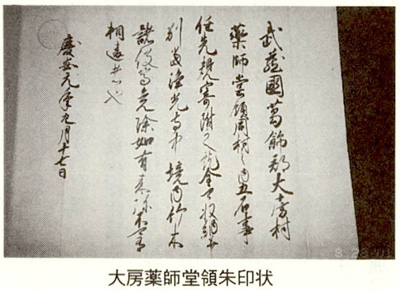 武蔵國葛飾郡大房村
薬師堂領同村之内五石事
任先規寄附之訖全可収納并
別当浄光寺中境内竹木
諸役等免除如有来永不可有
相違者也
慶安元年九月十七日
大房薬師堂領朱印状